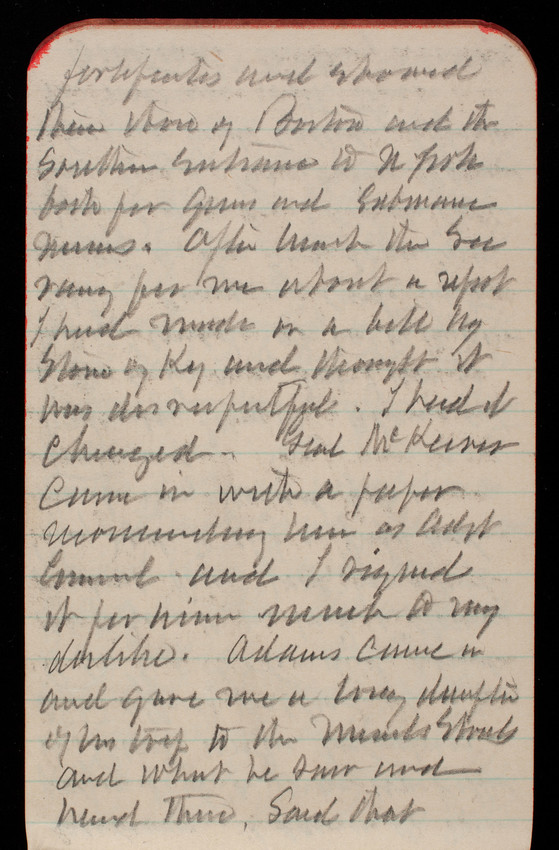 fortificates and showed
them those of Boston and the
Southern entrance to N York
both for guns and submarine
mines. After lunch the Sec
rang for me about a report
I had made on a bill by
Stone of Ky and thought it
was disrespectful. I had it
changed. Genl McKeever
came in with a paper
recommending him as Adjt
General and I signed
it for him much to my
dislike. Adams came in
and gave me a long
of his trip to the
and what he saw and
heard there. Said that